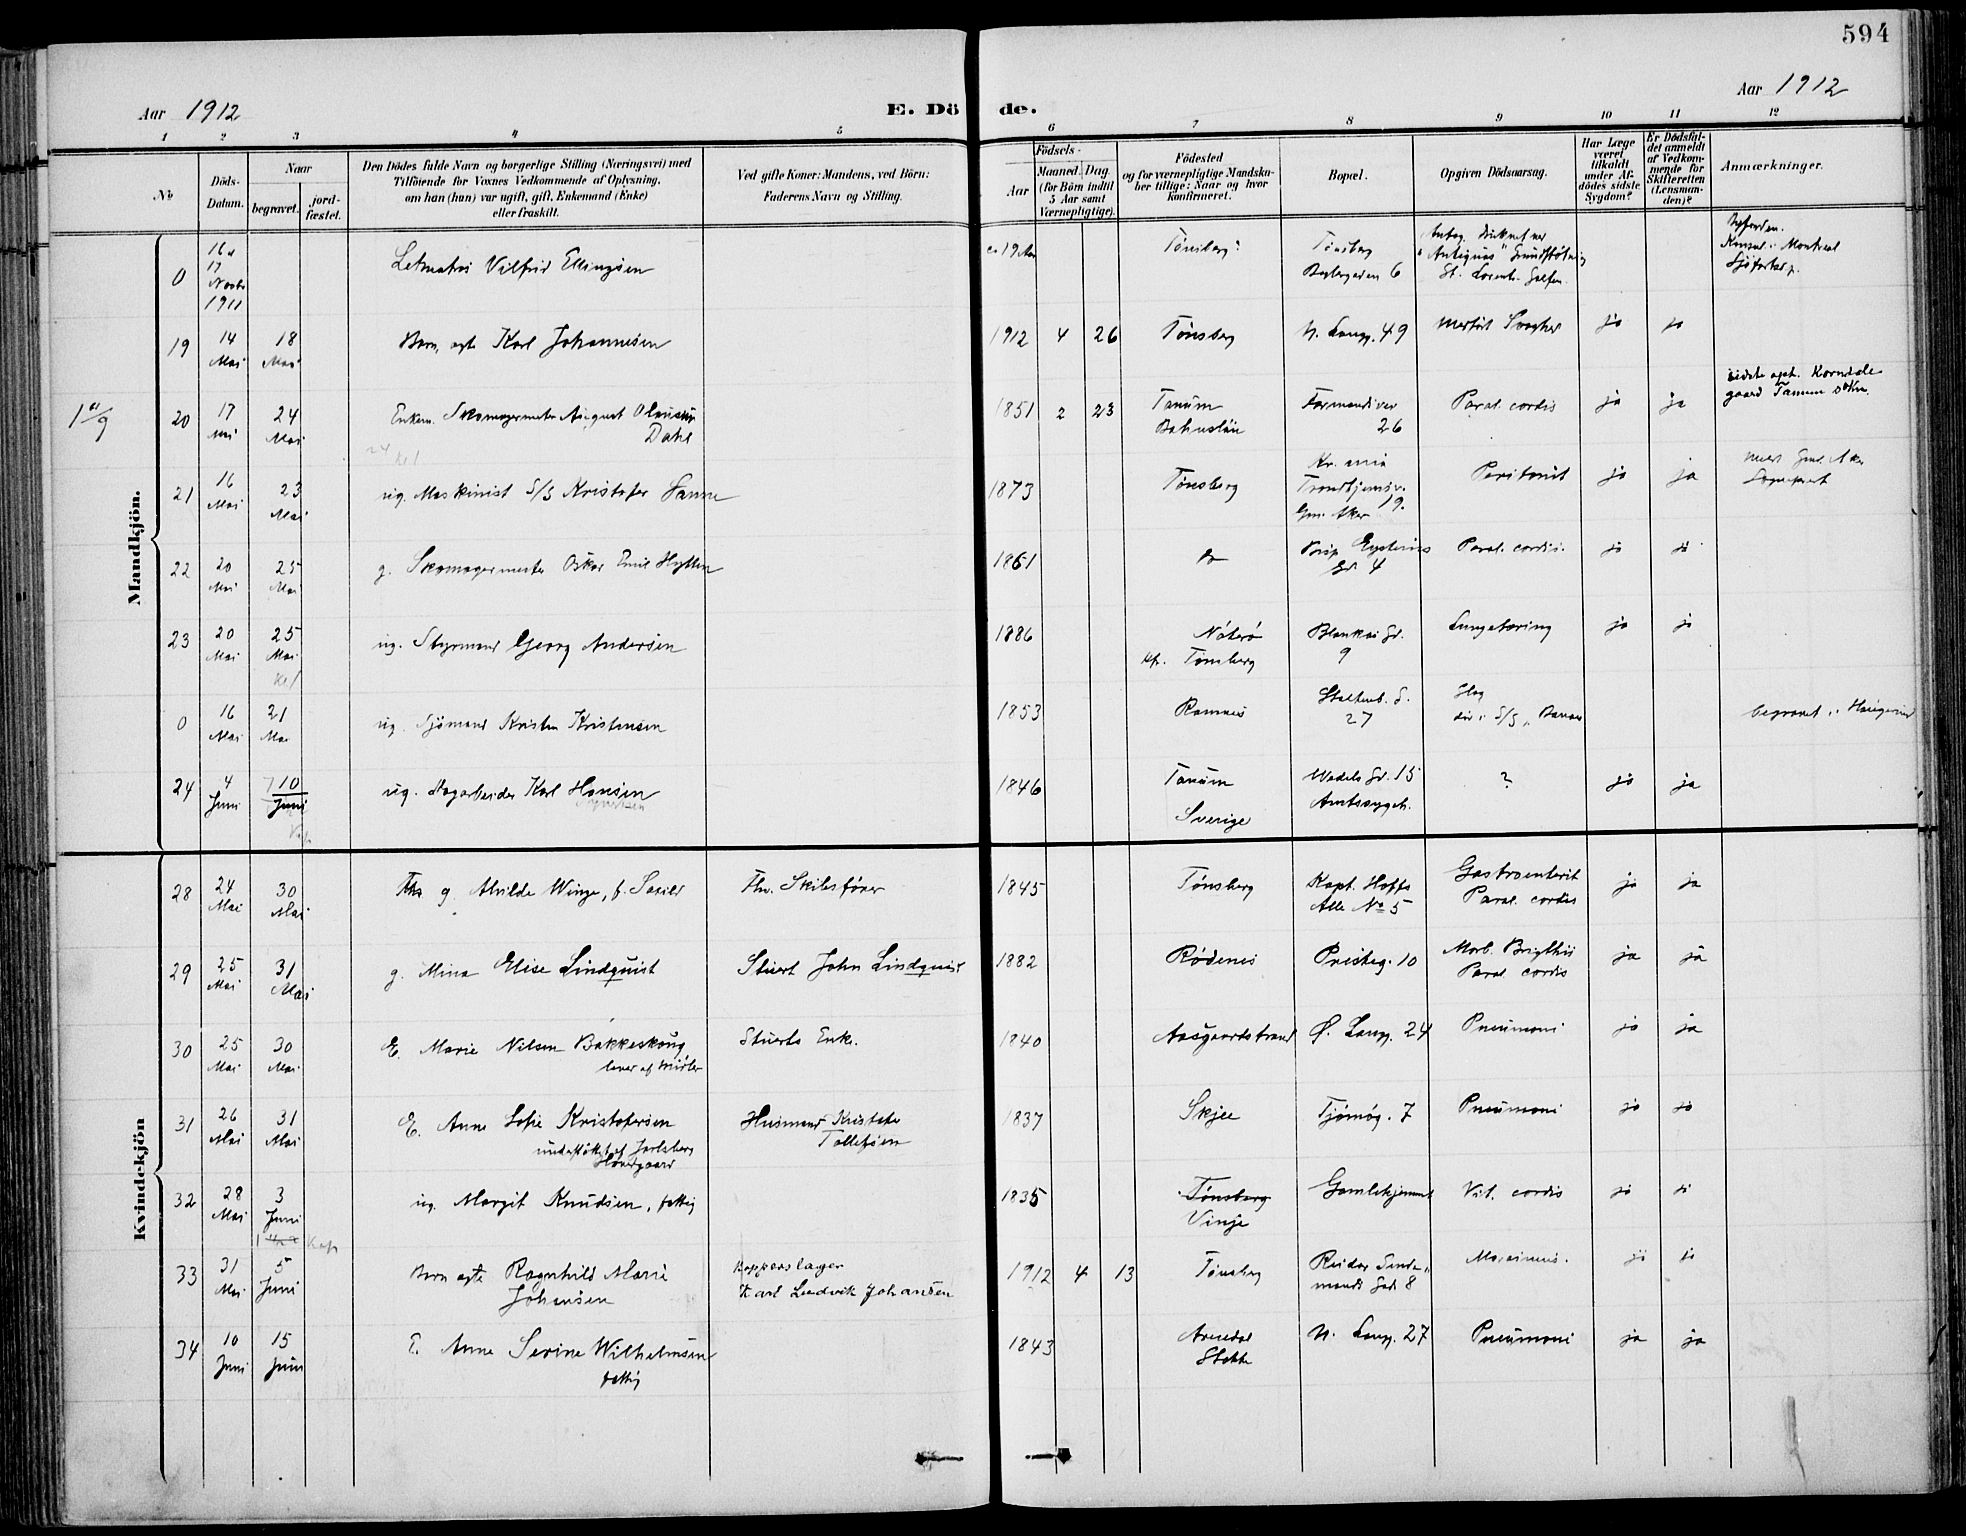 594
Aar 1912
E. Dö de.
Aar 1912
1 2 3 4 5 6 7 8 9 10 11 12
No
Döds-Datum.
Naar
begravet.
jord-fæstet.
Den Dödes fulde Navn og borgerlige Stilling (Næringsvei) med
Tilföiende for Voxnes Vedkommende af Oplysning,
om han (hun) var ugift, gift, Enkemand (Enke)
eller fraskilt.
Ved gifte Koner: Mandens, ved Börn:
Faderens Navn og Stilling.
Födsels-
Aar
Maaned. Dag
(for Börn indtil
5 Aar samt
Værnepligtige).
Födested
og for værnepligtige Mandska-
ber tillige: Naar og hvor
konfirmeret.
Bopæl.
Opgiven Dödsaarsag.
Har Læge
været
tilkaldt
under Af-
dödes sidste
Sygdom?
Er Dödsfal-
det anmeldt
af Vedkom-
mende for
Skifteretten
(Lensman-
den)?
Anmærkninger.
Mandkjön.
0 16 17 Novbr 1911 Letmatros Vilfrid Ellingsen Tönsberg Tönsberg 6 Antag. druknet ved "Antiguas" Grundstötning St. Lorents-Golfen Konsul i Montreal
19 14 Mai 18 Mai Barn, egte Karl Johannesen 1912 4 26 Tönsberg N. Langg. 49 Medfødt Svaghet ja ja
20 17 Mai 24 Mai Enkem. Skomagermester August Olaus Dahl 1851 2 23 Tanum Bahuslän Farmandsvei 26 Paral. cordis ja ja Tanum sokn
21 16 Mai 23 Mai ug. Maskinist S/S Kristofer Hanne 1873 Tönsberg Kr.ania Trondhjemsv. 19. Peritonit ja ja
22 20 Mai 25 Mai g. Skomagermester Oskar Emil Hytten 1861 Eysteins Gd. 4 Paral. cordis. ja ja
23 20 Mai 25 Mai ug. Styrmand Georg Andersen 1886 Nöterö kf. Tönsberg 9 Lungetæring ja ja
0 16 Mai 21 Mai ug. Sjömand Kristen Kristensen 1853 Ramnes Stoltenb. G. 27 Slag begravet i
24 4 Juni 10 Juni ug. Karl Hansen 1846 Tanum Sverige Wedels Gd. 15 Amtssygeh. ? ja ja
Kvindekjön
28 24 Mai 30 Mai g. Alvilde Winge, f. Th. Skibsfører 1845 Tönsberg Kapt. Hoffs Alle No 5 Gastroenterit Paral. cordis ja ja
29 25 Mai 31 Mai g. Mina Elise Lindquist Stuert John Lindquist 1882 Rödenes Presteg. 10 Morb. Brigthii Paral. cordis ja ja
30 25 Mai 30 Mai E. Marie Nilsen Bakkeskaug lever af midler Stuerts Enke. 1840 Aasgaardstrand Ø. Langg. 24 Pneumoni ja ja
31 26 Mai 31 Mai E. Anne Sofie Kristofersen understöttet af Jarlsberg Hovedgaard Husmand Kristofer Tollefsen 1837 Skjee Tjömög. 7 Pneumoni ja ja
32 28 Mai 3 Juni ug. Margit Knudsen, fattig 1835 Tönsberg Vinje Gamlehjemmet Vit. cordis ja ja
33 31 Mai 5 Juni Barn egte Ragnhild Marie Johansen Kopperslager Karl Ludvik Johansen 1912 4 13 Tönsberg 8 ja ja
34 10 Juni 15 Juni E. Anne Serine Wilhelmsen fattig 1843 Stokke N. Langg. 27 Pneumoni ja ja